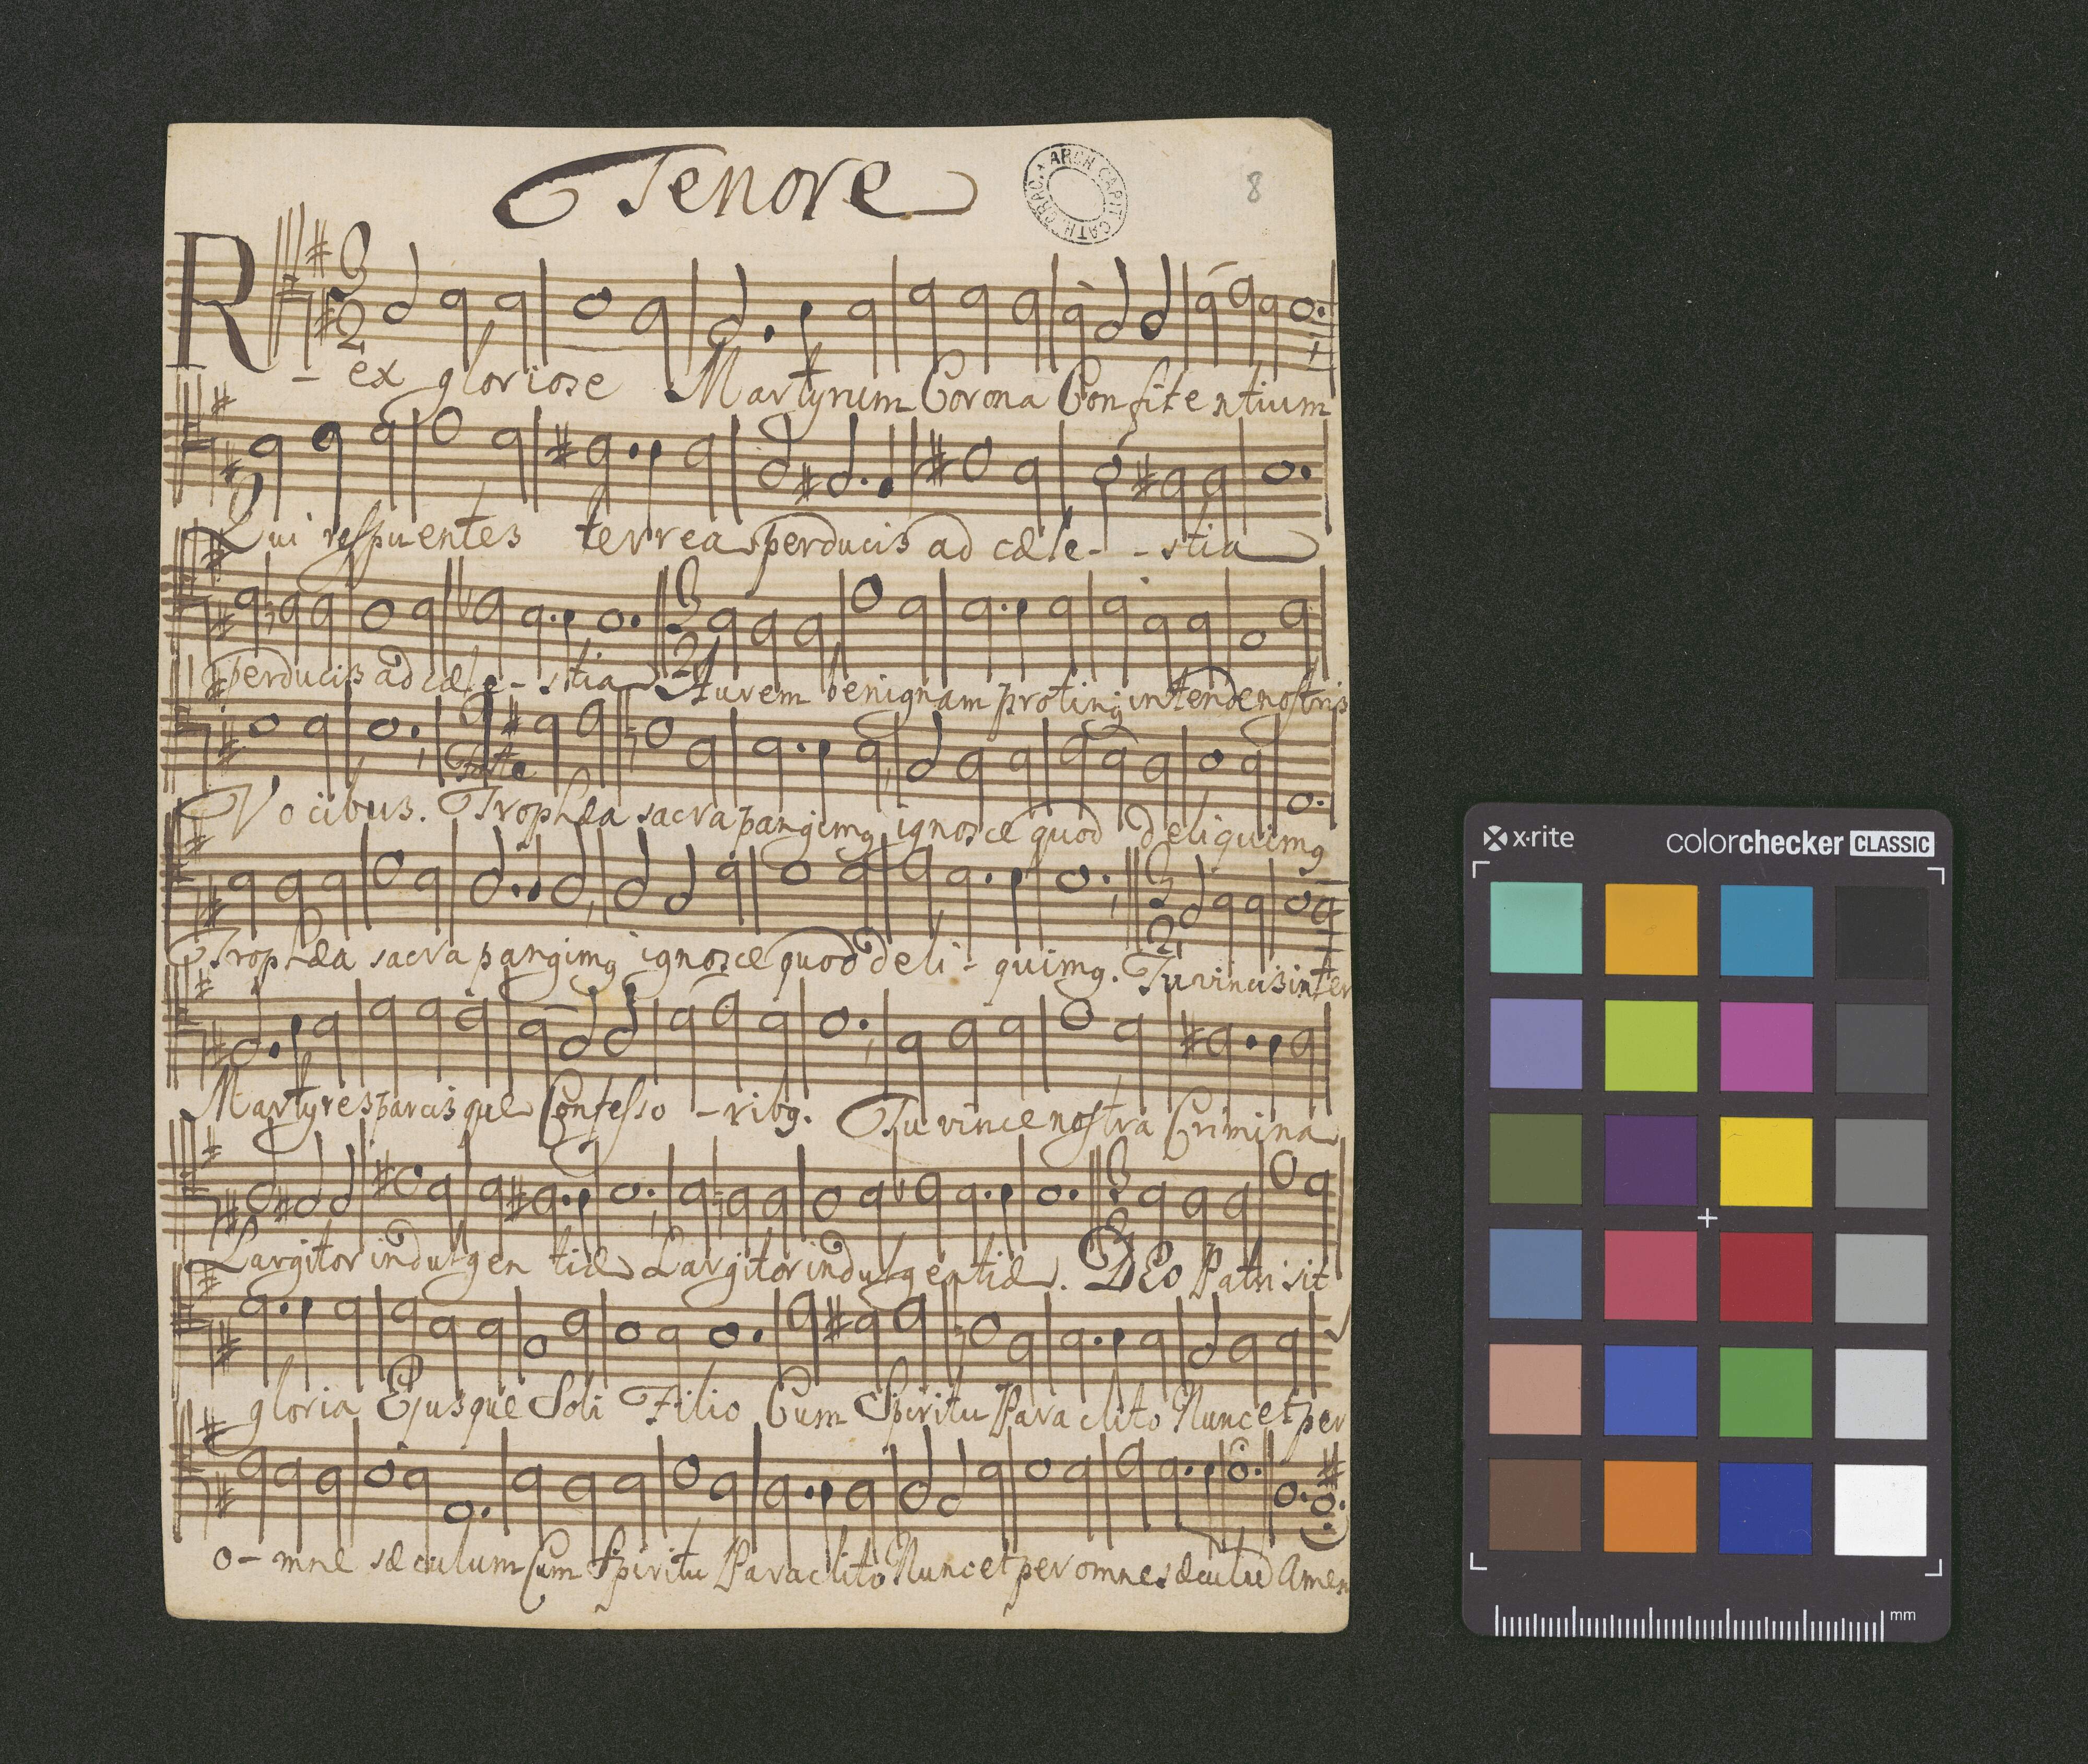 Tenore
ARCH. CAPIT. CATH. CRAC.
8
3
2
Rex gloriose Martyrum Corona Confitentium
Qui respuentes terrea perducis ad cæle - - stia
3
2
perducis ad cæle - stia Aurem benignam protinq intende nostris
Vocibus. Trophæa sacra pangimq ignosce quod deliquimq
3
2
Trophæa sacra pangimq ignosce quod deli - quimq. Tu vincis inter
Martyres parcisque Confesso - ribq. Tu vince nostra Crimina
3
2
Largitor indulgen tiæ Largitor indulgentiæ. DEo Patri sit
gloria Ejusque Soli Filio Cum Spiritu Paraclito Nunc et per
o - mne sæculum Cum Spiritu Paraclito Nunc et per omne sæculū Amen
x·rite colorchecker CLASSIC
mm